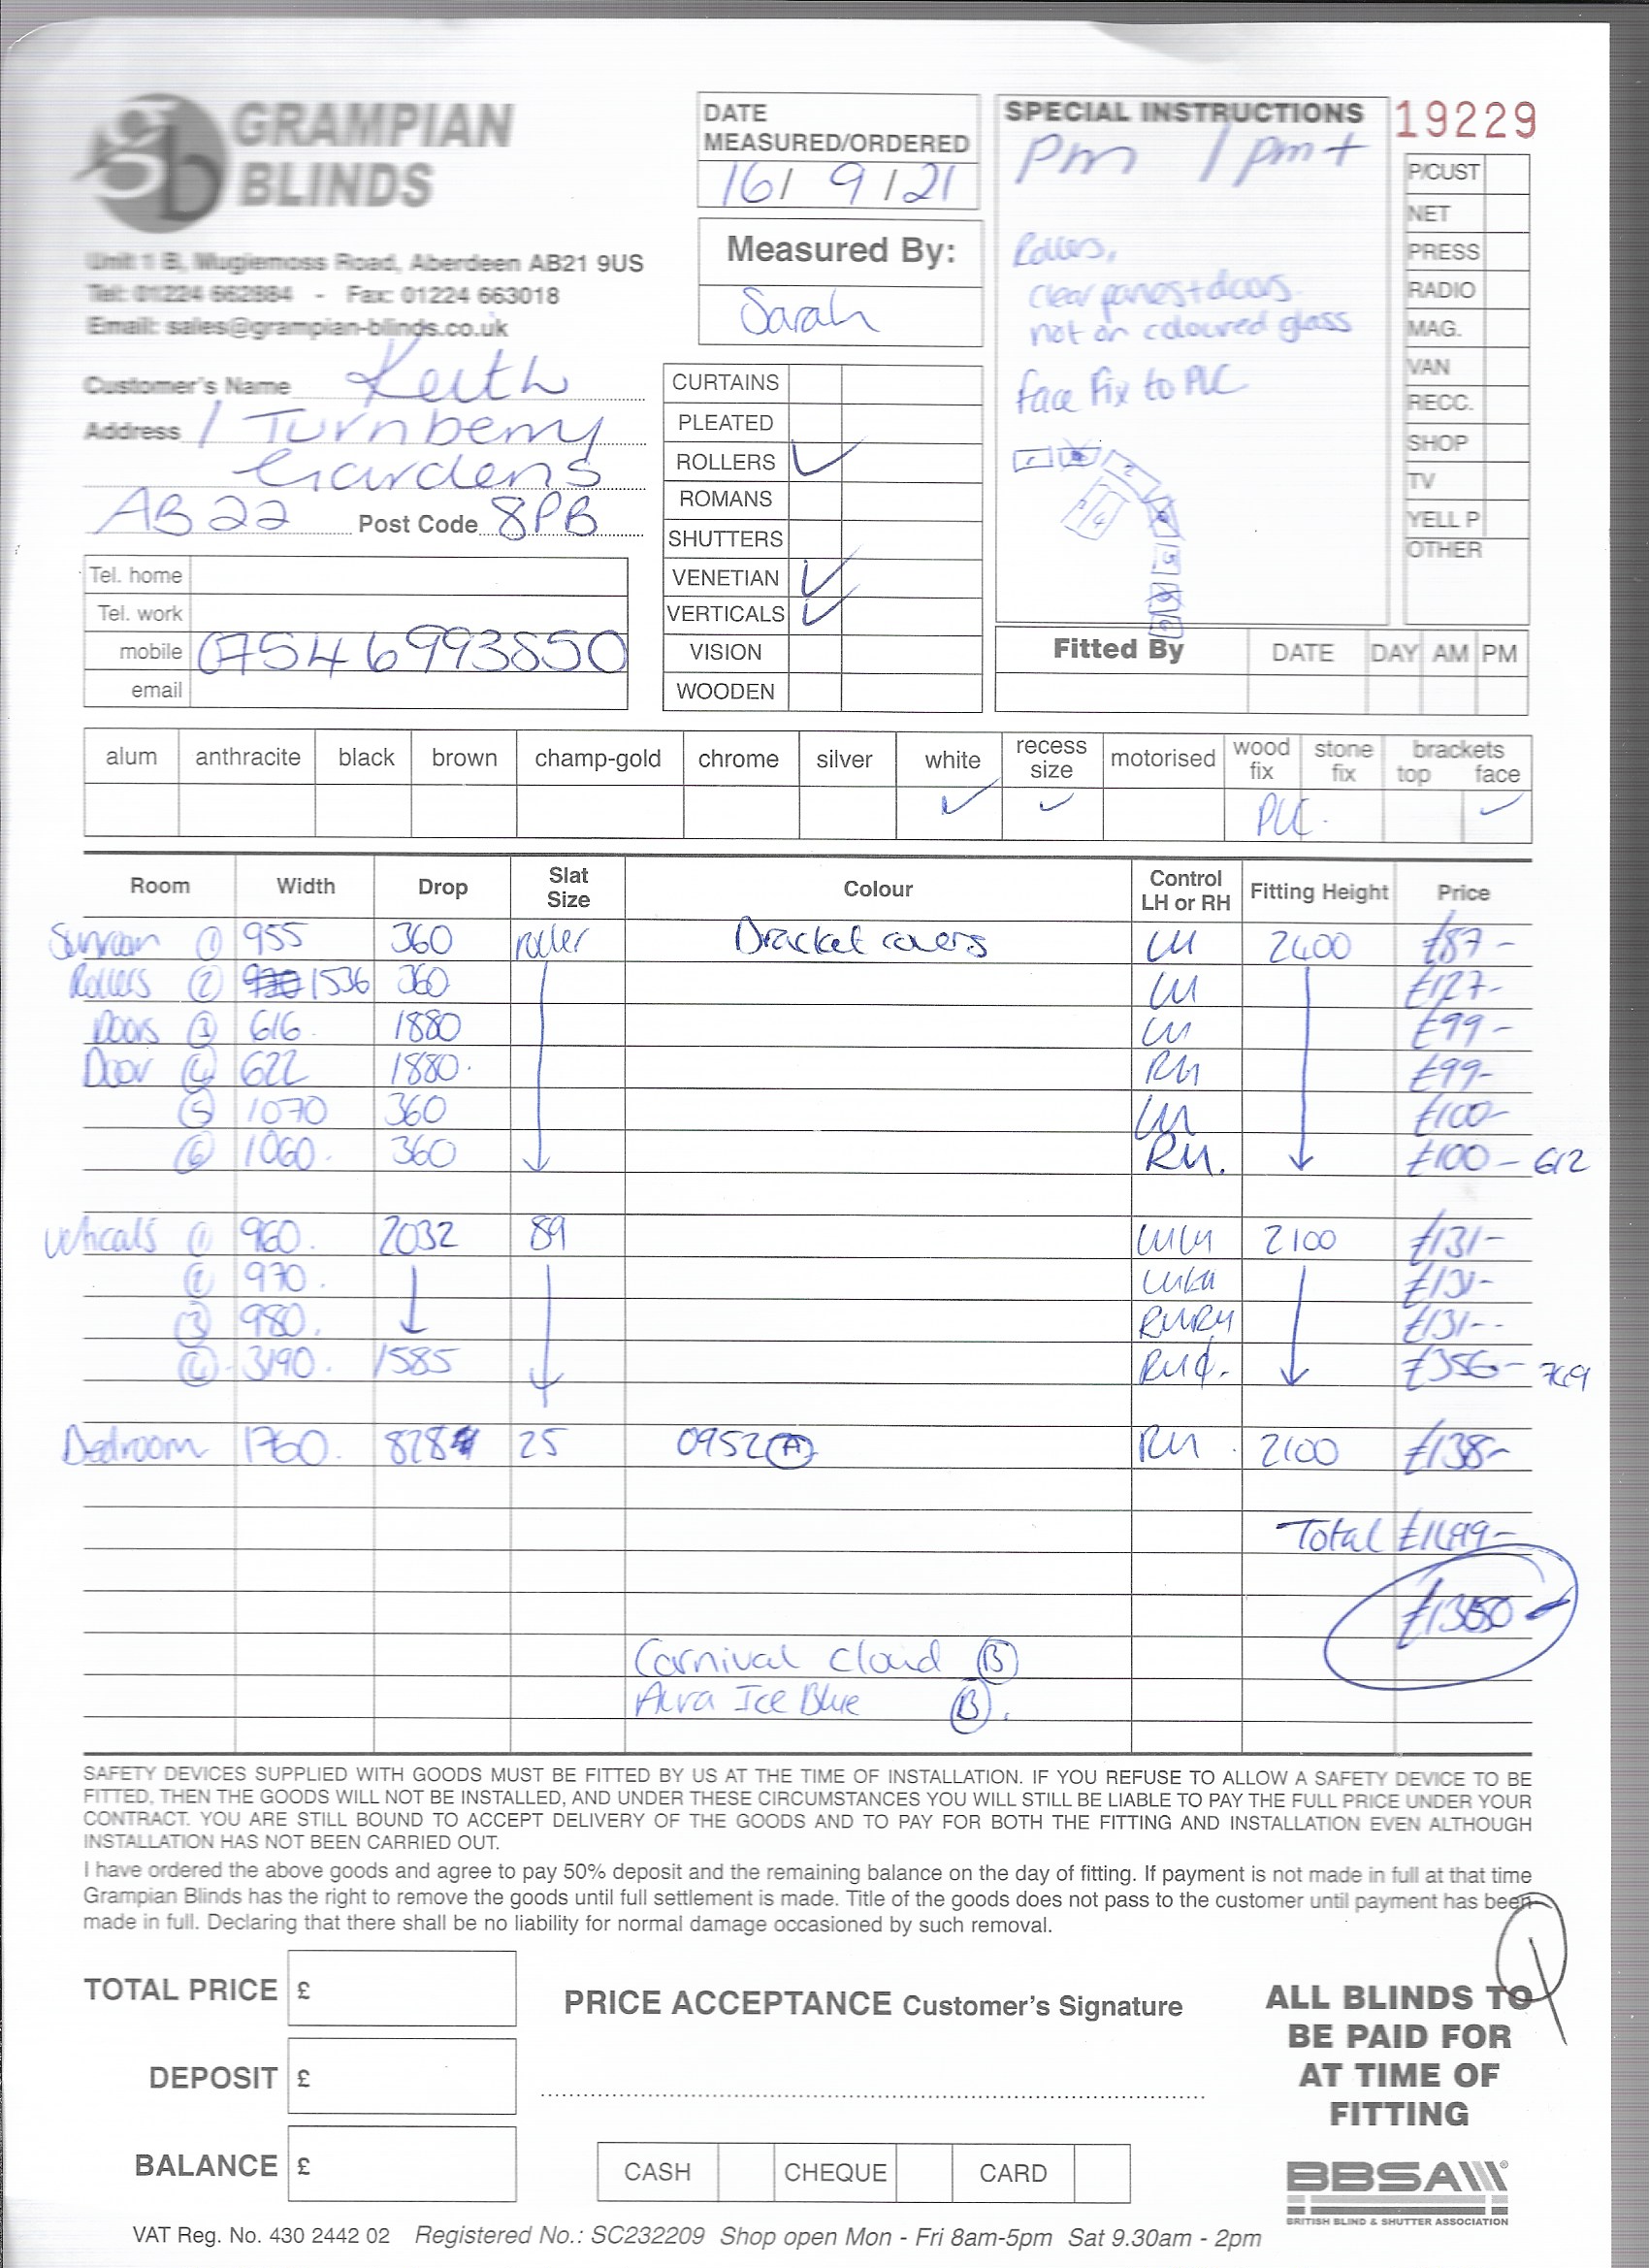 GRAMPIAN
BLINDS
Unit 1 B, Mugiemoss Road, Aberdeen AB21 9US
Tel: 01224 662884 - Fax: 01224 663018
Email: sales@grampian-blinds.co.uk
Customer's Name Keith
Address 1 Turnberry
Gardens
AB22 Post Code 8PB
Tel. home
Tel. work
mobile 07546993850
email
DATE
MEASURED/ORDERED
16/ 9 /21
Measured By:
Sarah
CURTAINS
PLEATED
ROLLERS ✓
ROMANS
SHUTTERS
VENETIAN ✓
VERTICALS ✓
VISION
WOODEN
SPECIAL INSTRUCTIONS
pm 1pm+
Rollers,
clear panes + doors
not on coloured glass
face fix to PVC
19229
P/CUST
NET
PRESS
RADIO
MAG.
VAN
RECC.
SHOP
TV
YELL P
OTHER
Fitted By DATE DAY AM PM
alum anthracite black brown champ-gold chrome silver white recess size motorised wood fix stone fix brackets top face
✓ ✓ PVC. ✓
Room Width Drop Slat Size Colour Control LH or RH Fitting Height Price
Sunroom ① 955 360 roller Bracket covers LH 2400 £87-
Rollers ② 1536 360 LH £127-
Doors ③ 616 1880 LH £99-
Door ④ 622 1880. RH £99-
⑤ 1070 360 LH £100-
⑥ 1060. 360 RH. £100- 612
Verticals ① 960. 2032 89 LHLH 2100 £131-
② 970. LHLH £131-
③ 980. RHRH £131-
④ 3190. 1585 RH¢. £356- 749
Bedroom 1760. 828 25 0952 Ⓐ RH. 2100 £138-
Total £1499-
£1350-
Carnival Cloud Ⓑ
Alva Ice Blue Ⓑ.
SAFETY DEVICES SUPPLIED WITH GOODS MUST BE FITTED BY US AT THE TIME OF INSTALLATION. IF YOU REFUSE TO ALLOW A SAFETY DEVICE TO BE
FITTED, THEN THE GOODS WILL NOT BE INSTALLED, AND UNDER THESE CIRCUMSTANCES YOU WILL STILL BE LIABLE TO PAY THE FULL PRICE UNDER YOUR
CONTRACT. YOU ARE STILL BOUND TO ACCEPT DELIVERY OF THE GOODS AND TO PAY FOR BOTH THE FITTING AND INSTALLATION EVEN ALTHOUGH
INSTALLATION HAS NOT BEEN CARRIED OUT.
I have ordered the above goods and agree to pay 50% deposit and the remaining balance on the day of fitting. If payment is not made in full at that time
Grampian Blinds has the right to remove the goods until full settlement is made. Title of the goods does not pass to the customer until payment has been
made in full. Declaring that there shall be no liability for normal damage occasioned by such removal.
TOTAL PRICE £
DEPOSIT £
BALANCE £
PRICE ACCEPTANCE Customer's Signature
CASH CHEQUE CARD
ALL BLINDS TO
BE PAID FOR
AT TIME OF
FITTING
BBSA
BRITISH BLIND & SHUTTER ASSOCIATION
VAT Reg. No. 430 2442 02 Registered No.: SC232209 Shop open Mon - Fri 8am-5pm Sat 9.30am - 2pm